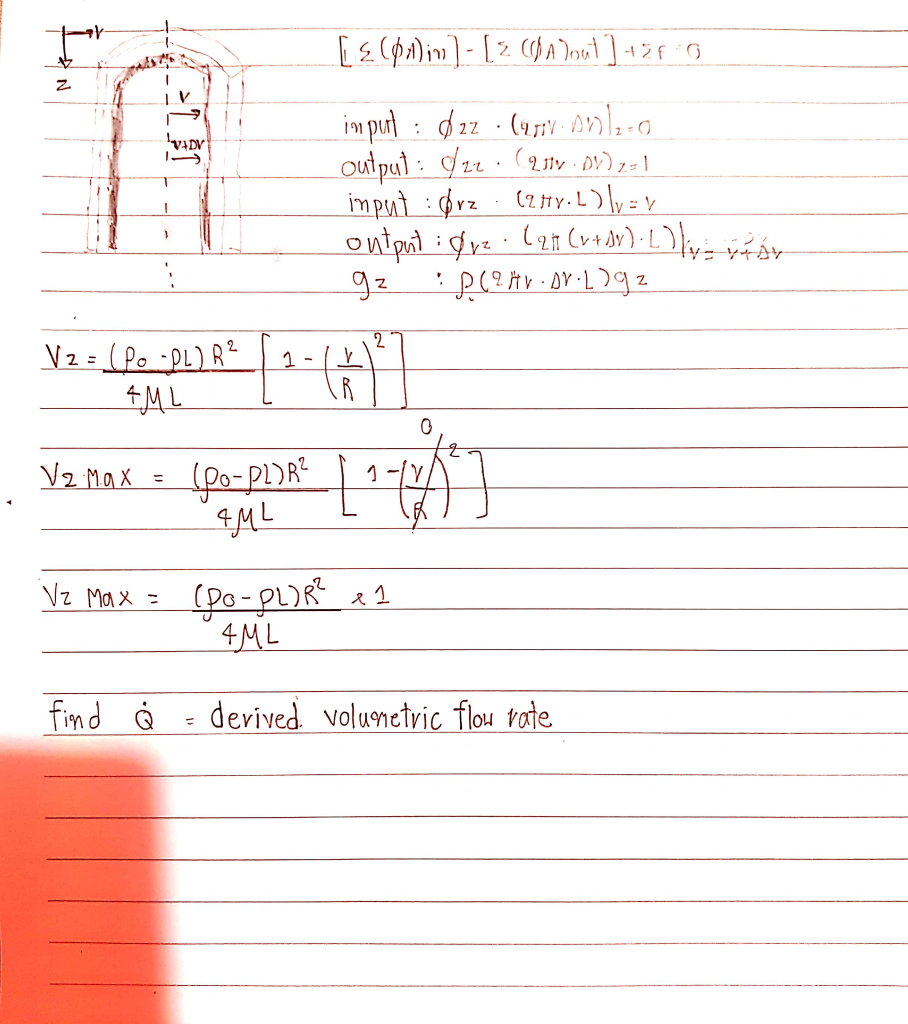 r
z
r
r+Δr
[Σ(ϕA)in] - [Σ(ϕA)out] + ΣF = 0
input : ϕzz · (2πr · Δr)|z=0
output : ϕzz · (2πr · Δr) z=l
input : ϕrz · (2πr·L)|r=r
output : ϕrz · (2π(r+Δr)·L)|r=r+Δr
gz : ρ(2πr·Δr·L)gz
Vz = (Po - PL) R² / 4ML [1 - (r/R)²]
Vz Max = (Po - PL)R² / 4ML [1 - (r/R)²] 0
Vz Max = (Po - PL)R² / 4ML x 1
find Q̇ = derived. volumetric flow rate